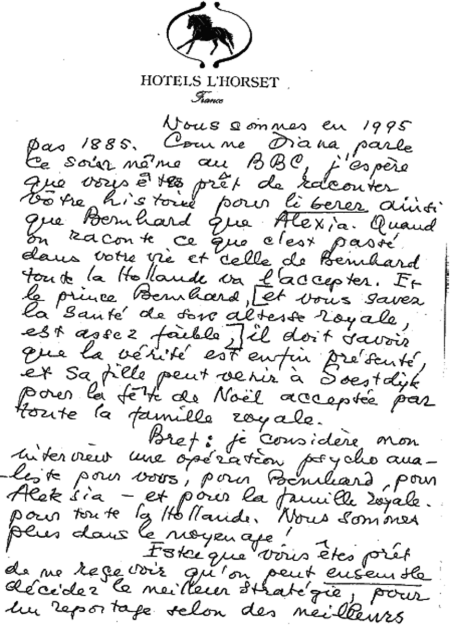 HOTELS L'HORSET
France
Nous sommes en 1995
pas 1885. Comme Diana parle
ce soir même au BBC, j'espère
que vous êtes prêt de raconter
vôtre histoire pour liberer ainsi
que Bernhard que Alexia. Quand
on raconte ce que c'est passé
dans votre vie et celle de Bernhard
toute la Hollande va l'accepter. Et
le prince Bernhard, [et vous savez
la santé de son altesse royale,
est assez faible,] il doit savoir
que la vérité est enfin présenté,
et sa fille peut venir à Soestdijk
pour la fête de Noël acceptée par
toute la famille royale.
Bref: je considère mon
interview une opération psychoana-
liste pour vous, pour Bernhard, pour
Aleksia - et pour la famille royale.
pour toute la Hollande. Nous sommes
plus dans le moyenage!
Estceque vous êtes prêt
de me reçevoir qu'on peut ensemble
décidez le meilleur stratégie, pour
un reportage selon des meilleurs